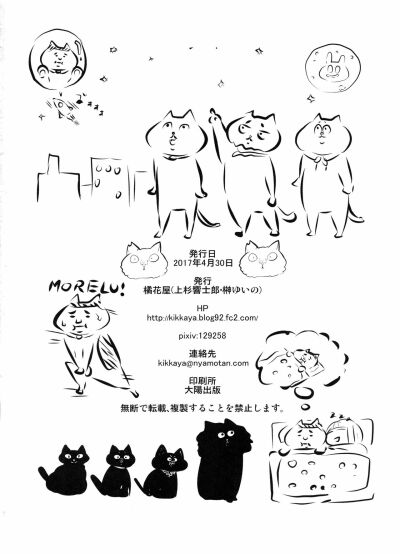 MORELU!
発行日
2017年4月30日
発行
橘花屋(上杉響士郎・榊ゆいの)
HP
http://kikkaya.blog92.fc2.com/
pixiv:129258
連絡先
kikkaya@nyamotan.com
印刷所
大陽出版
無断で転載、複製することを禁止します。
zzz